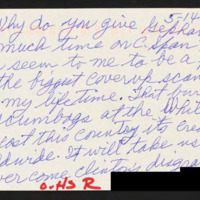 Why do you give Gephar
5/14
much time on C-Span
seem to me to be a p
the biggest coverup scan
my life time. That bun
scumbags at the Whit
cost this country its cred
dwide. It will take us
ver come Clinton's disgrac
O.H3 R